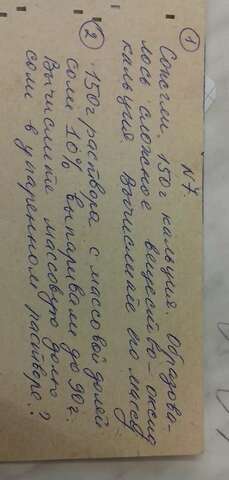 №7
① Сожгли 150г кальция. Образова-
лось сложное вещество - оксид
кальция. Вычислите его массу
② 150г раствора с массовой долей
соли 10% выпаривали до 90г.
Вычислите массовую долю
соли в упаренном растворе?